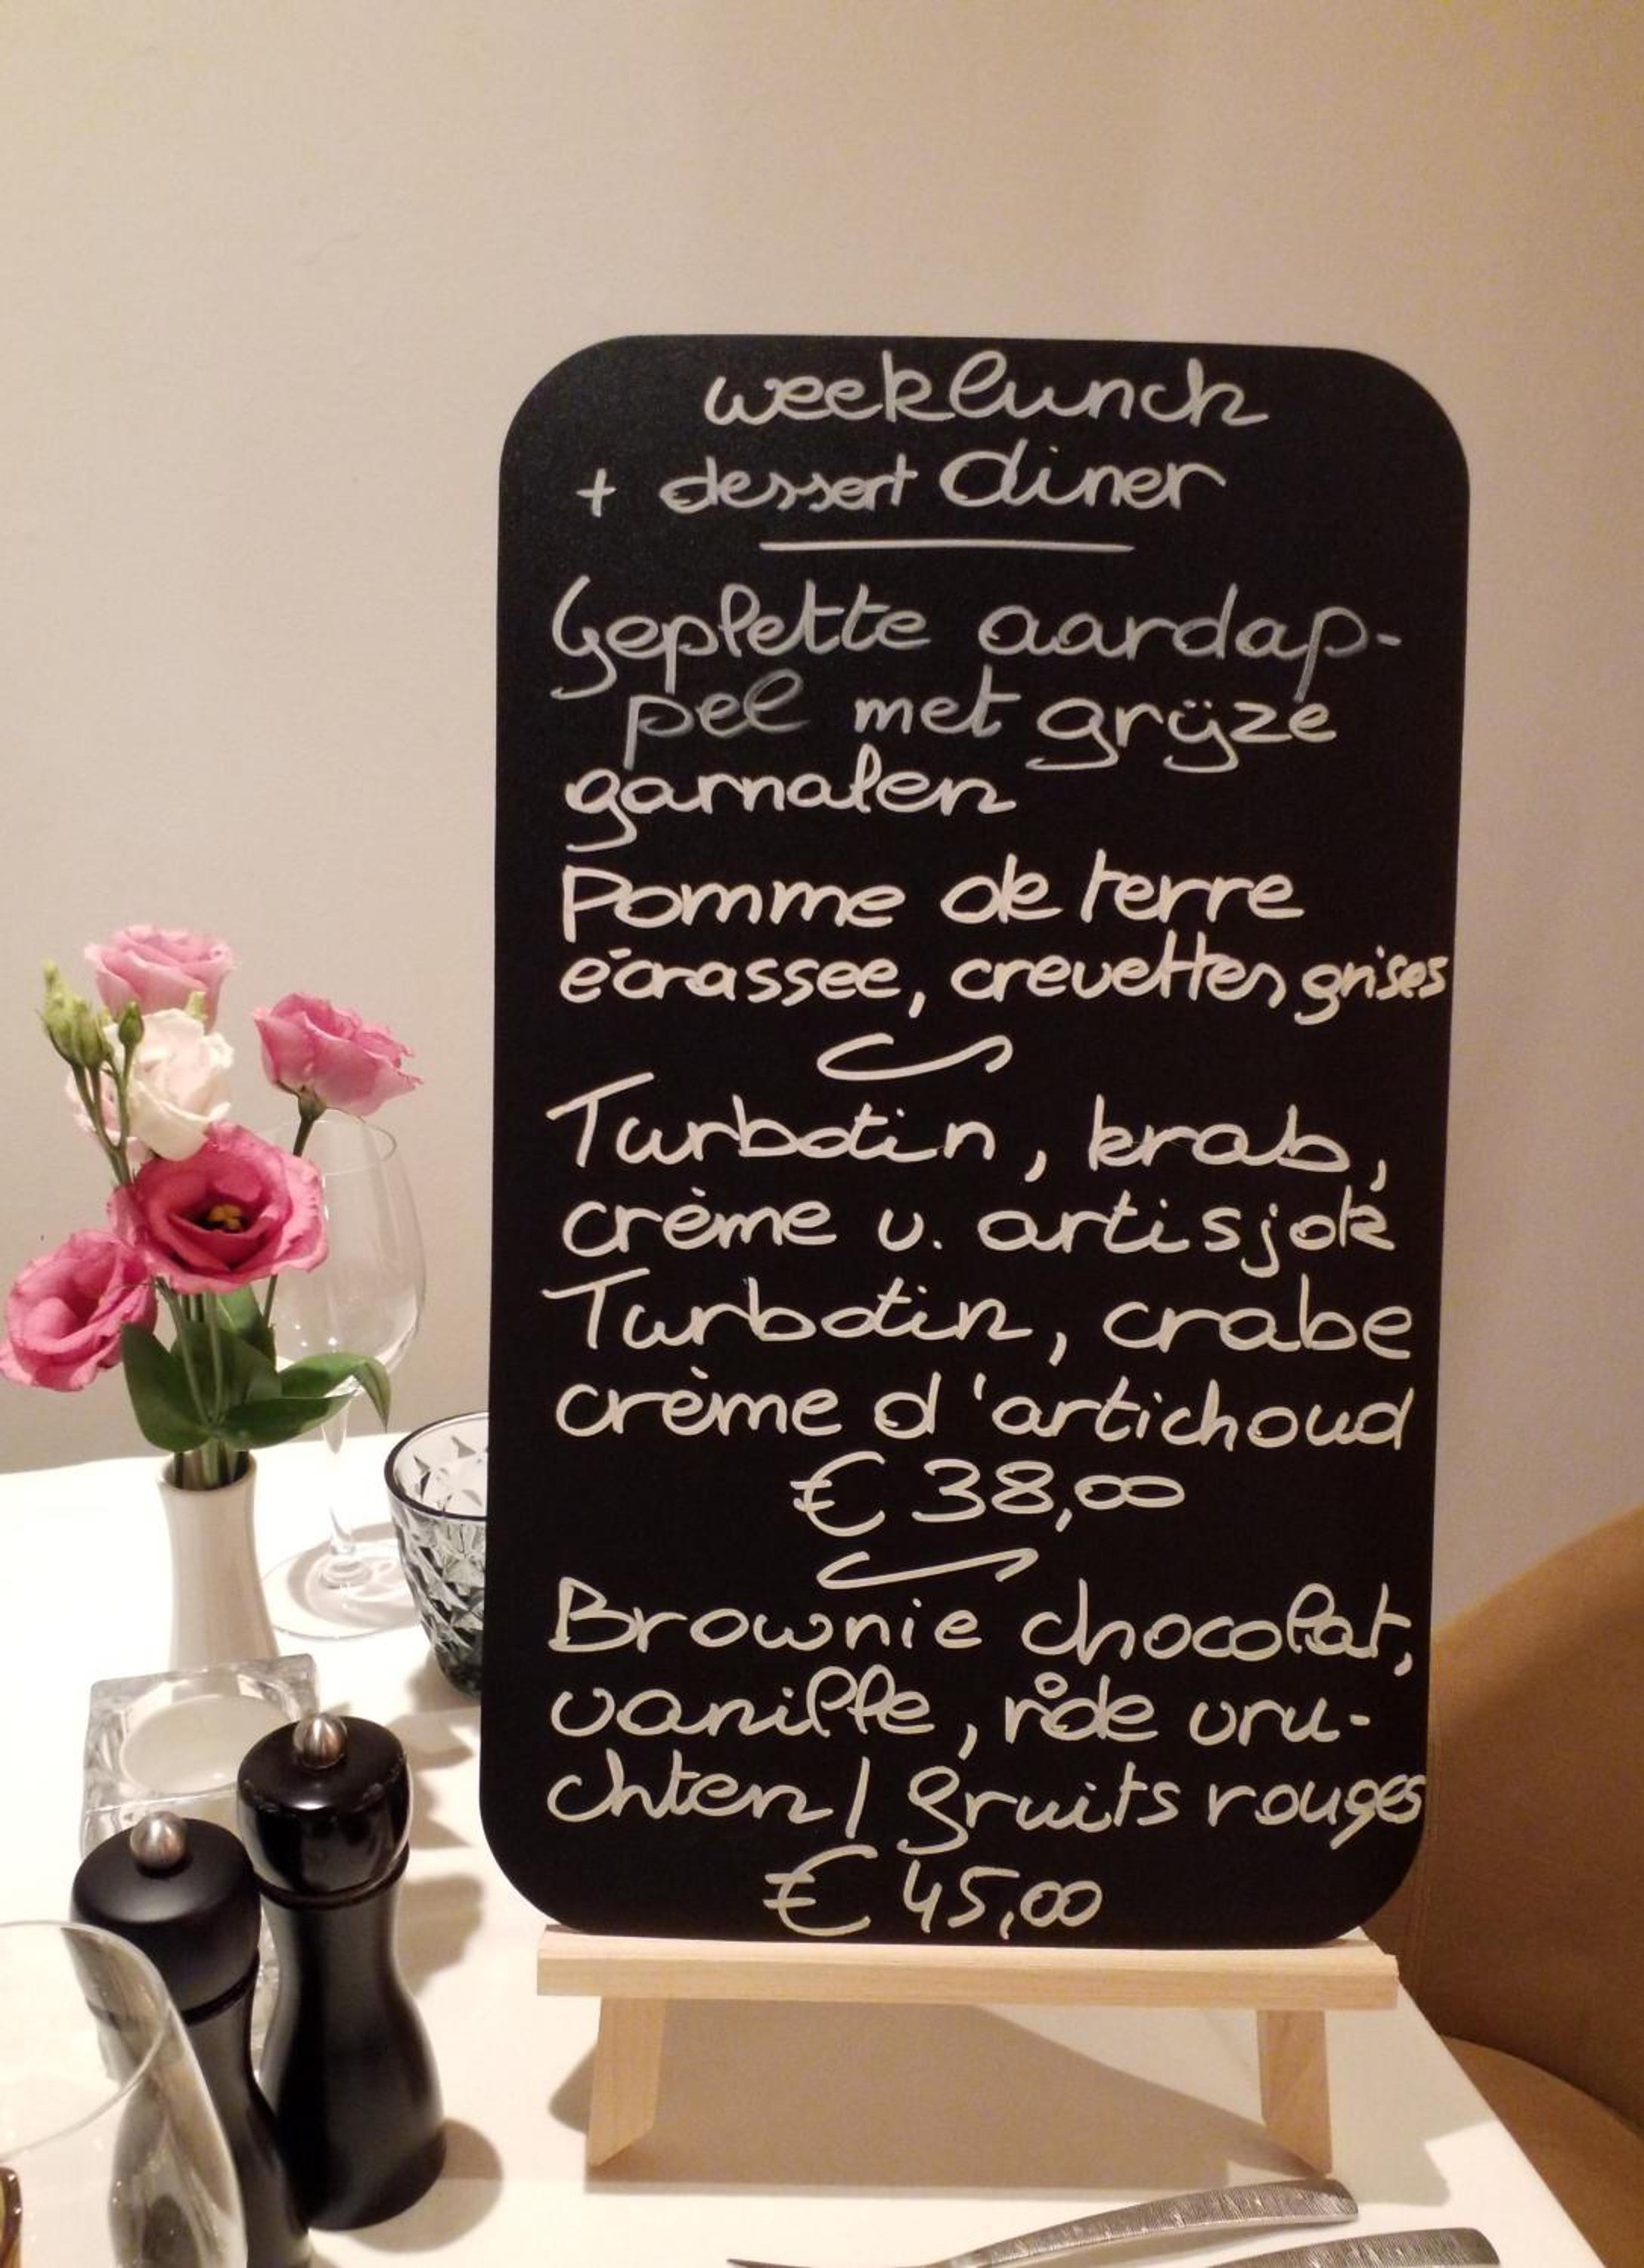 weeklunch
+ dessert diner
Geplette aardap-
pel met grijze
garnalen
Pomme de terre
écrassee, crevettes grises
Turbotin, krab,
crème v. artisjok
Turbotin, crabe
crème d'artichoud
€ 38,00
Brownie chocolat,
vanille, rode vru-
chten / fruits rouges
€ 45,00